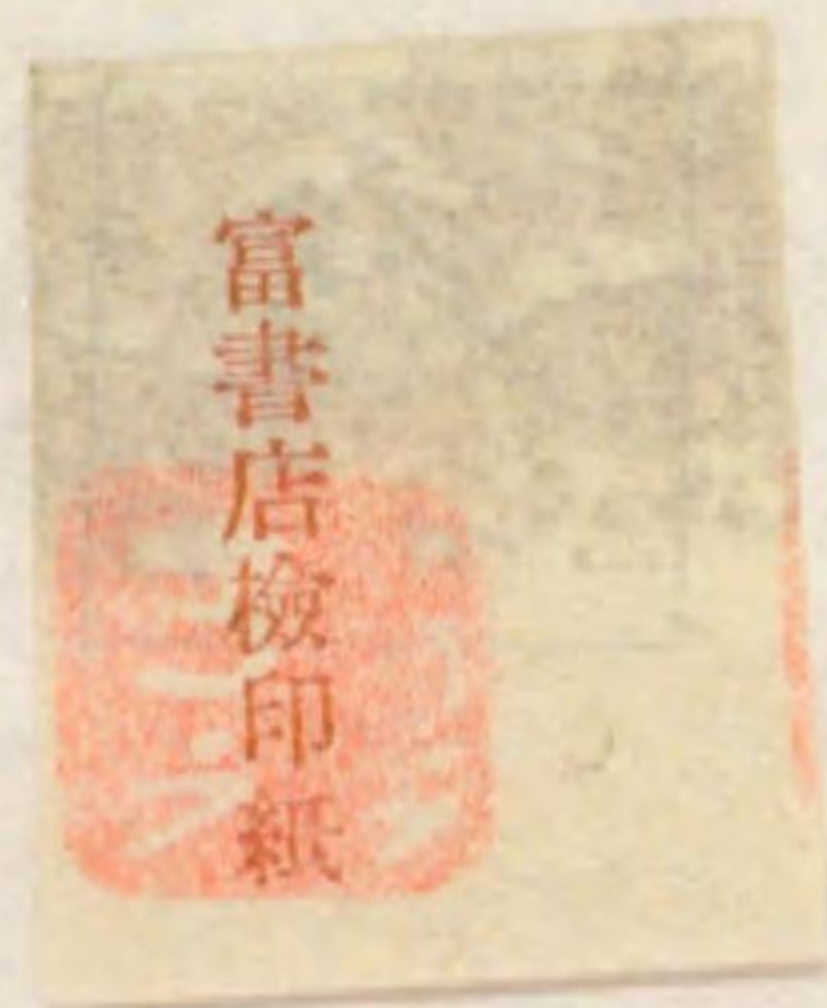 富書店檢印紙